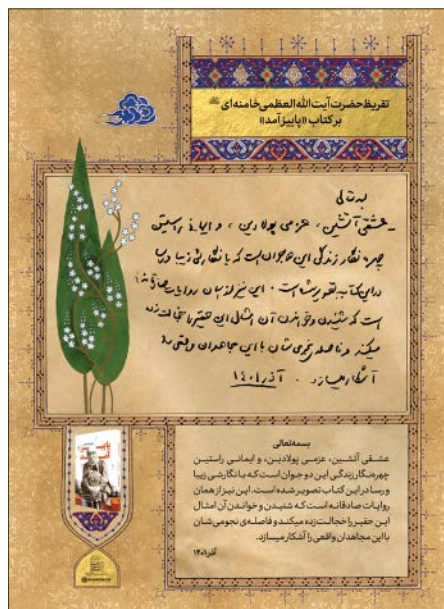 تقریظ حضرت آیت الله العظمی خامنه ای
بر کتاب «پاییز آمد»
بسمه‌تعالی
عشقی آتشین، عزمی پولادین، و ایمانی راستین
چهره‌نگار زندگی این دو جوان است که با نگارشی زیبا و رسا
در این کتاب تصویر شده است. این نیز از همان روایات صادقانه
است که شنیدن و خواندن آن امثال این حقیر را خجالت‌زده
میکند و فاصله‌ی نجومی‌شان با این مجاهدان واقعی را
آشکار میسازد. آذر ۱۴۰۱
پاییز
آمد
بسمه‌تعالی
عشقی آتشین، عزمی پولادین، و ایمانی راستین
چهره‌نگار زندگی این دو جوان است که با نگارشی زیبا
و رسا در این کتاب تصویر شده است. این نیز از همان
روایات صادقانه است که شنیدن و خواندن آن امثال
این حقیر را خجالت زده میکند و فاصله‌ی نجومی‌شان
با این مجاهدان واقعی را آشکار میسازد.
آذر ۱۴۰۱